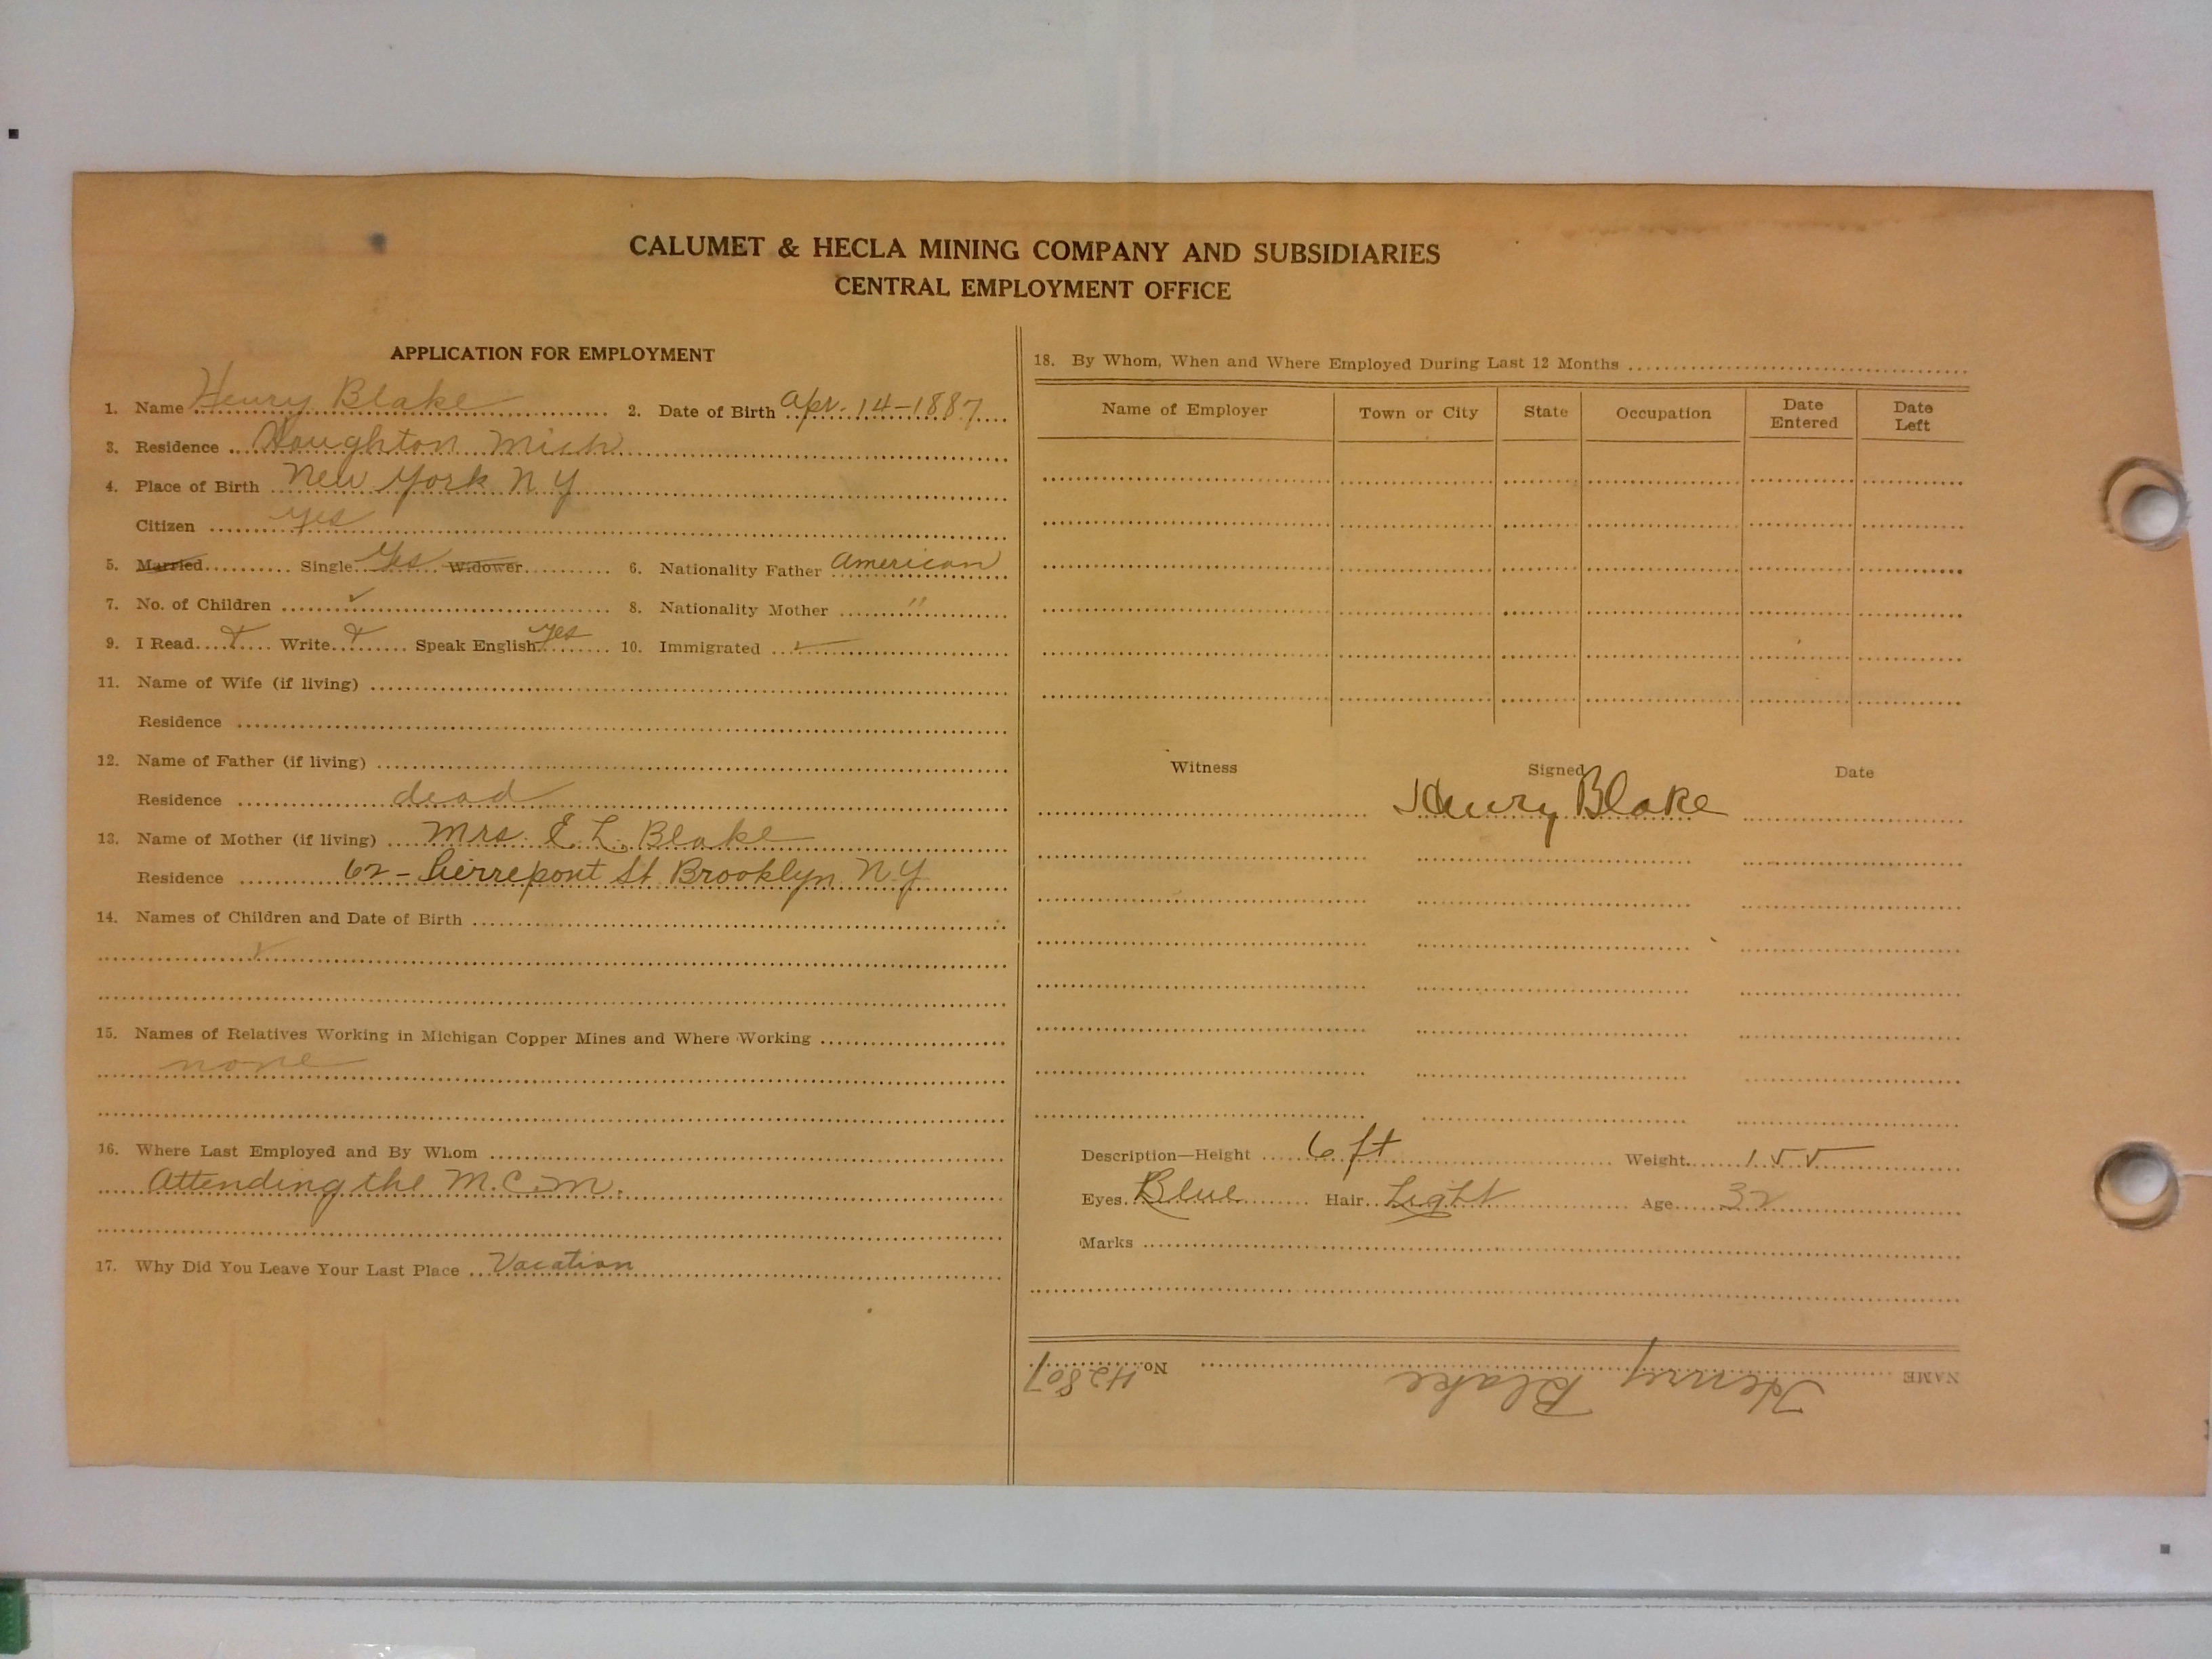 CALUMET & HECLA MINING COMPANY AND SUBSIDIARIES
CENTRAL EMPLOYMENT OFFICE
APPLICATION FOR EMPLOYMENT
1. Name Henry Blake 2. Date of Birth Apr. 14-1887
3. Residence Houghton Mich
4. Place of Birth New York N Y
Citizen yes
5. Married Single Yes Widower 6. Nationality Father American
7. No. of Children ✓ 8. Nationality Mother "
9. I Read Write Speak English Yes 10. Immigrated ✓
11. Name of Wife (if living)
Residence
12. Name of Father (if living)
Residence dead
13. Name of Mother (if living) Mrs. E. L. Blake
Residence 62 - Pierrepont St Brooklyn N Y
14. Names of Children and Date of Birth
✓
15. Names of Relatives Working in Michigan Copper Mines and Where Working
none
16. Where Last Employed and By Whom
Attending the M.C.M.
17. Why Did You Leave Your Last Place Vacation
18. By Whom, When and Where Employed During Last 12 Months
Name of Employer Town or City State Occupation Date Entered Date Left
Witness Signed Date
Henry Blake
Description—Height 6 ft Weight 155
Eyes Blue Hair Light Age 32
Marks
NAME Henry Blake No. 42807